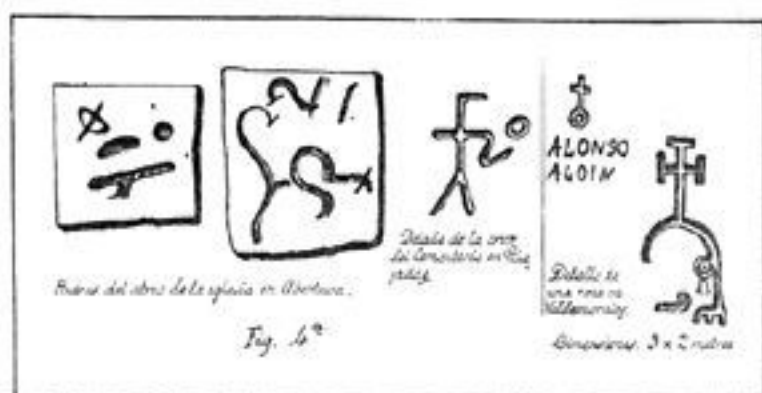 Piedras del atrio de la iglesia en Abertura.
Detalle de la cruz
del Cementerio en
ALONSO
ALOIN
Detalle de
una roca en
Valdemorales.
Dimensiones. 3 x 2 metros
Fig. 4ª